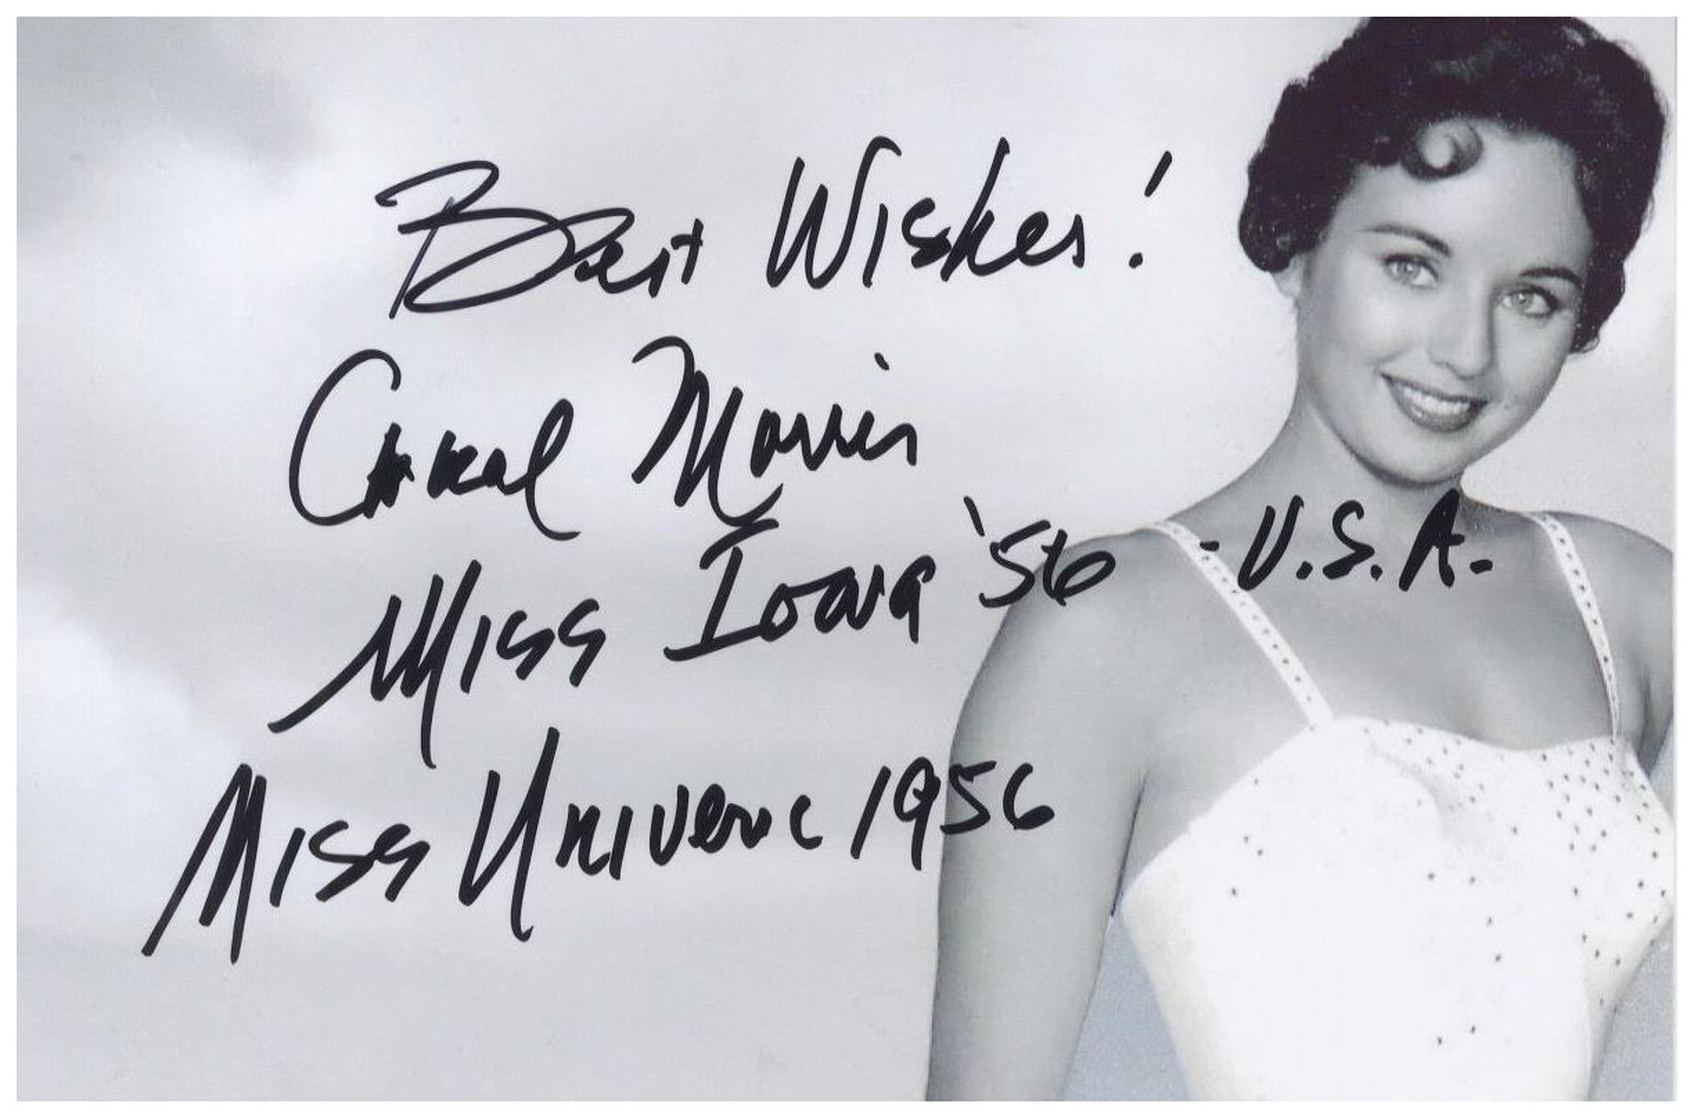 Best Wishes!
Carol Morris
Miss Iowa '56 - U.S.A.
Miss Universe 1956